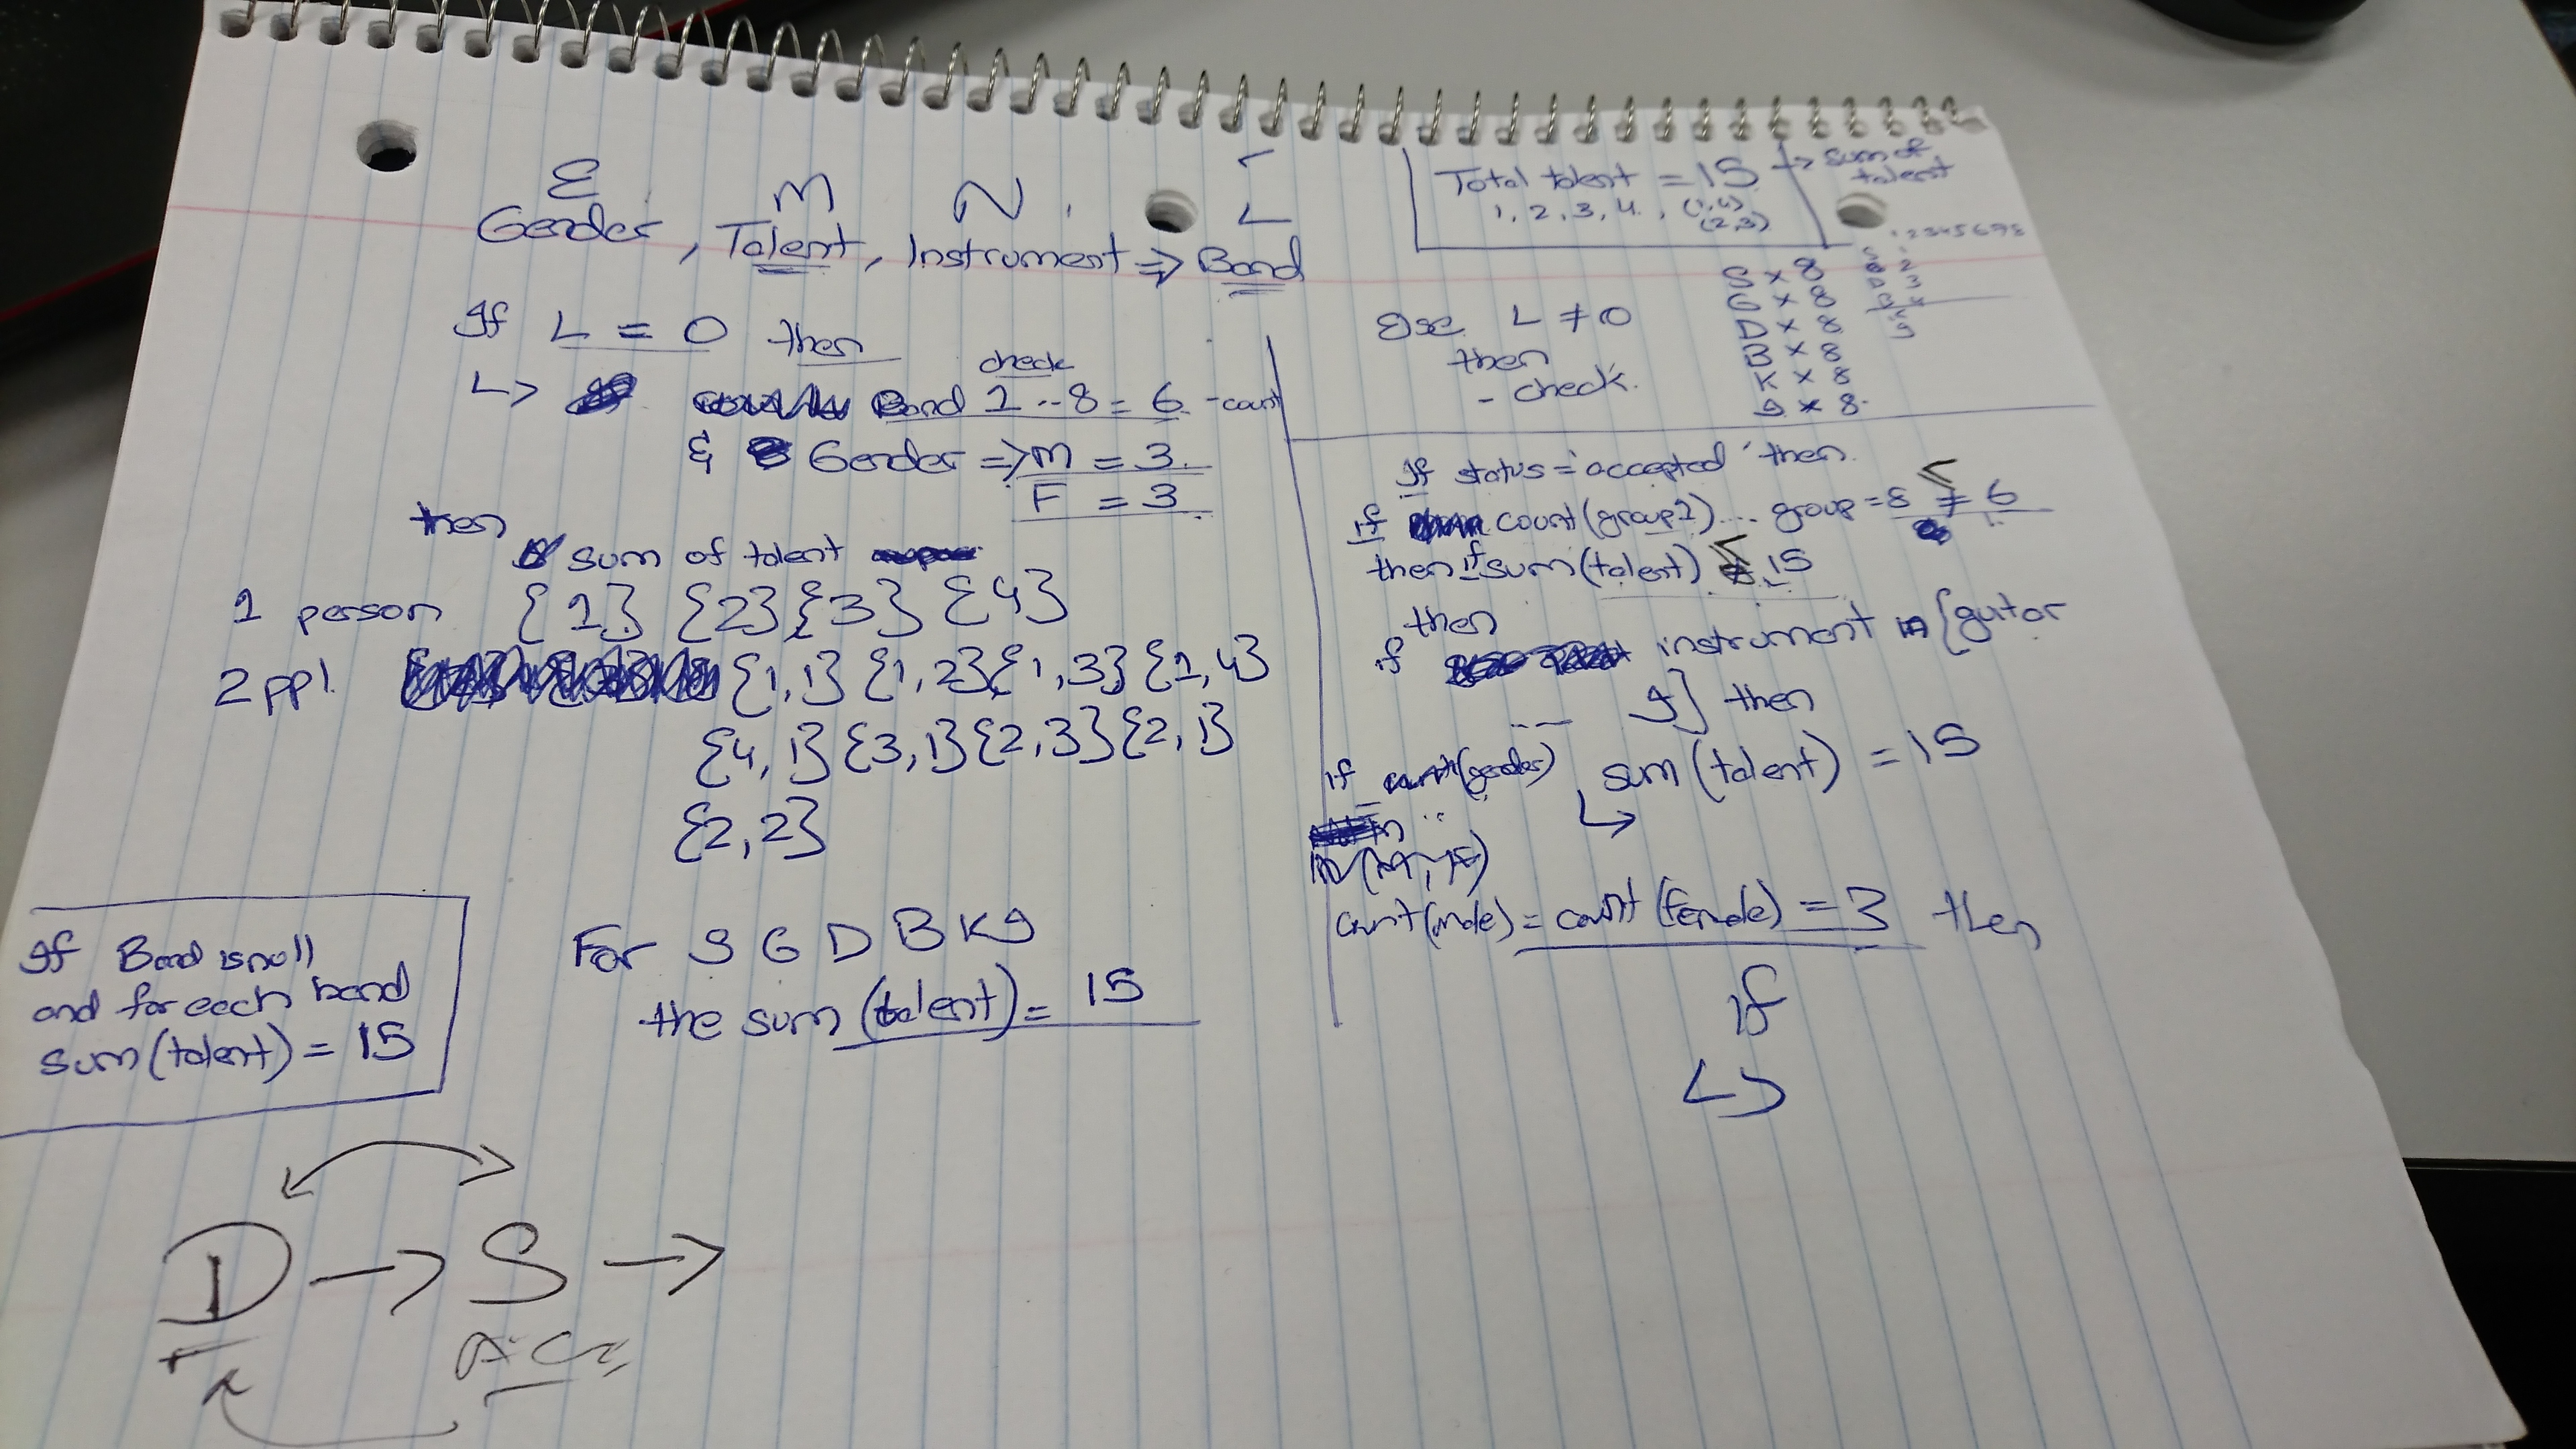 E M N L
Gender, Talent, Instrument => Band
If L = 0 then
check
Band 1 -- 8 = 6 - count
& Gender => M = 3
F = 3
then
sum of talent
1 person {1} {2} {3} {4}
2 ppl {1,1} {1,2} {1,3} {1,4}
{4,1} {3,1} {2,3} {2,1}
{2,2}
If Band is null
and for each band
sum(talent) = 15
For S G D B K 9
the sum (talent) = 15
D -> S ->
Total talent = 15 -> sum of
talent
1, 2, 3, 4, (1,4)
(2,3)
12345678
Else L ≠ 0
then
- check
S x 8
G x 8
D x 8
B x 8
K x 8
9 x 8
If status = 'accepted' then
if count(group1) ... group = 8 < 6
then if sum(talent) < 15
then
if instrument in {guitar
--- 9} then
if count(gender) sum(talent) = 15
in (M, F)
count(male) = count(female) = 3 then
if